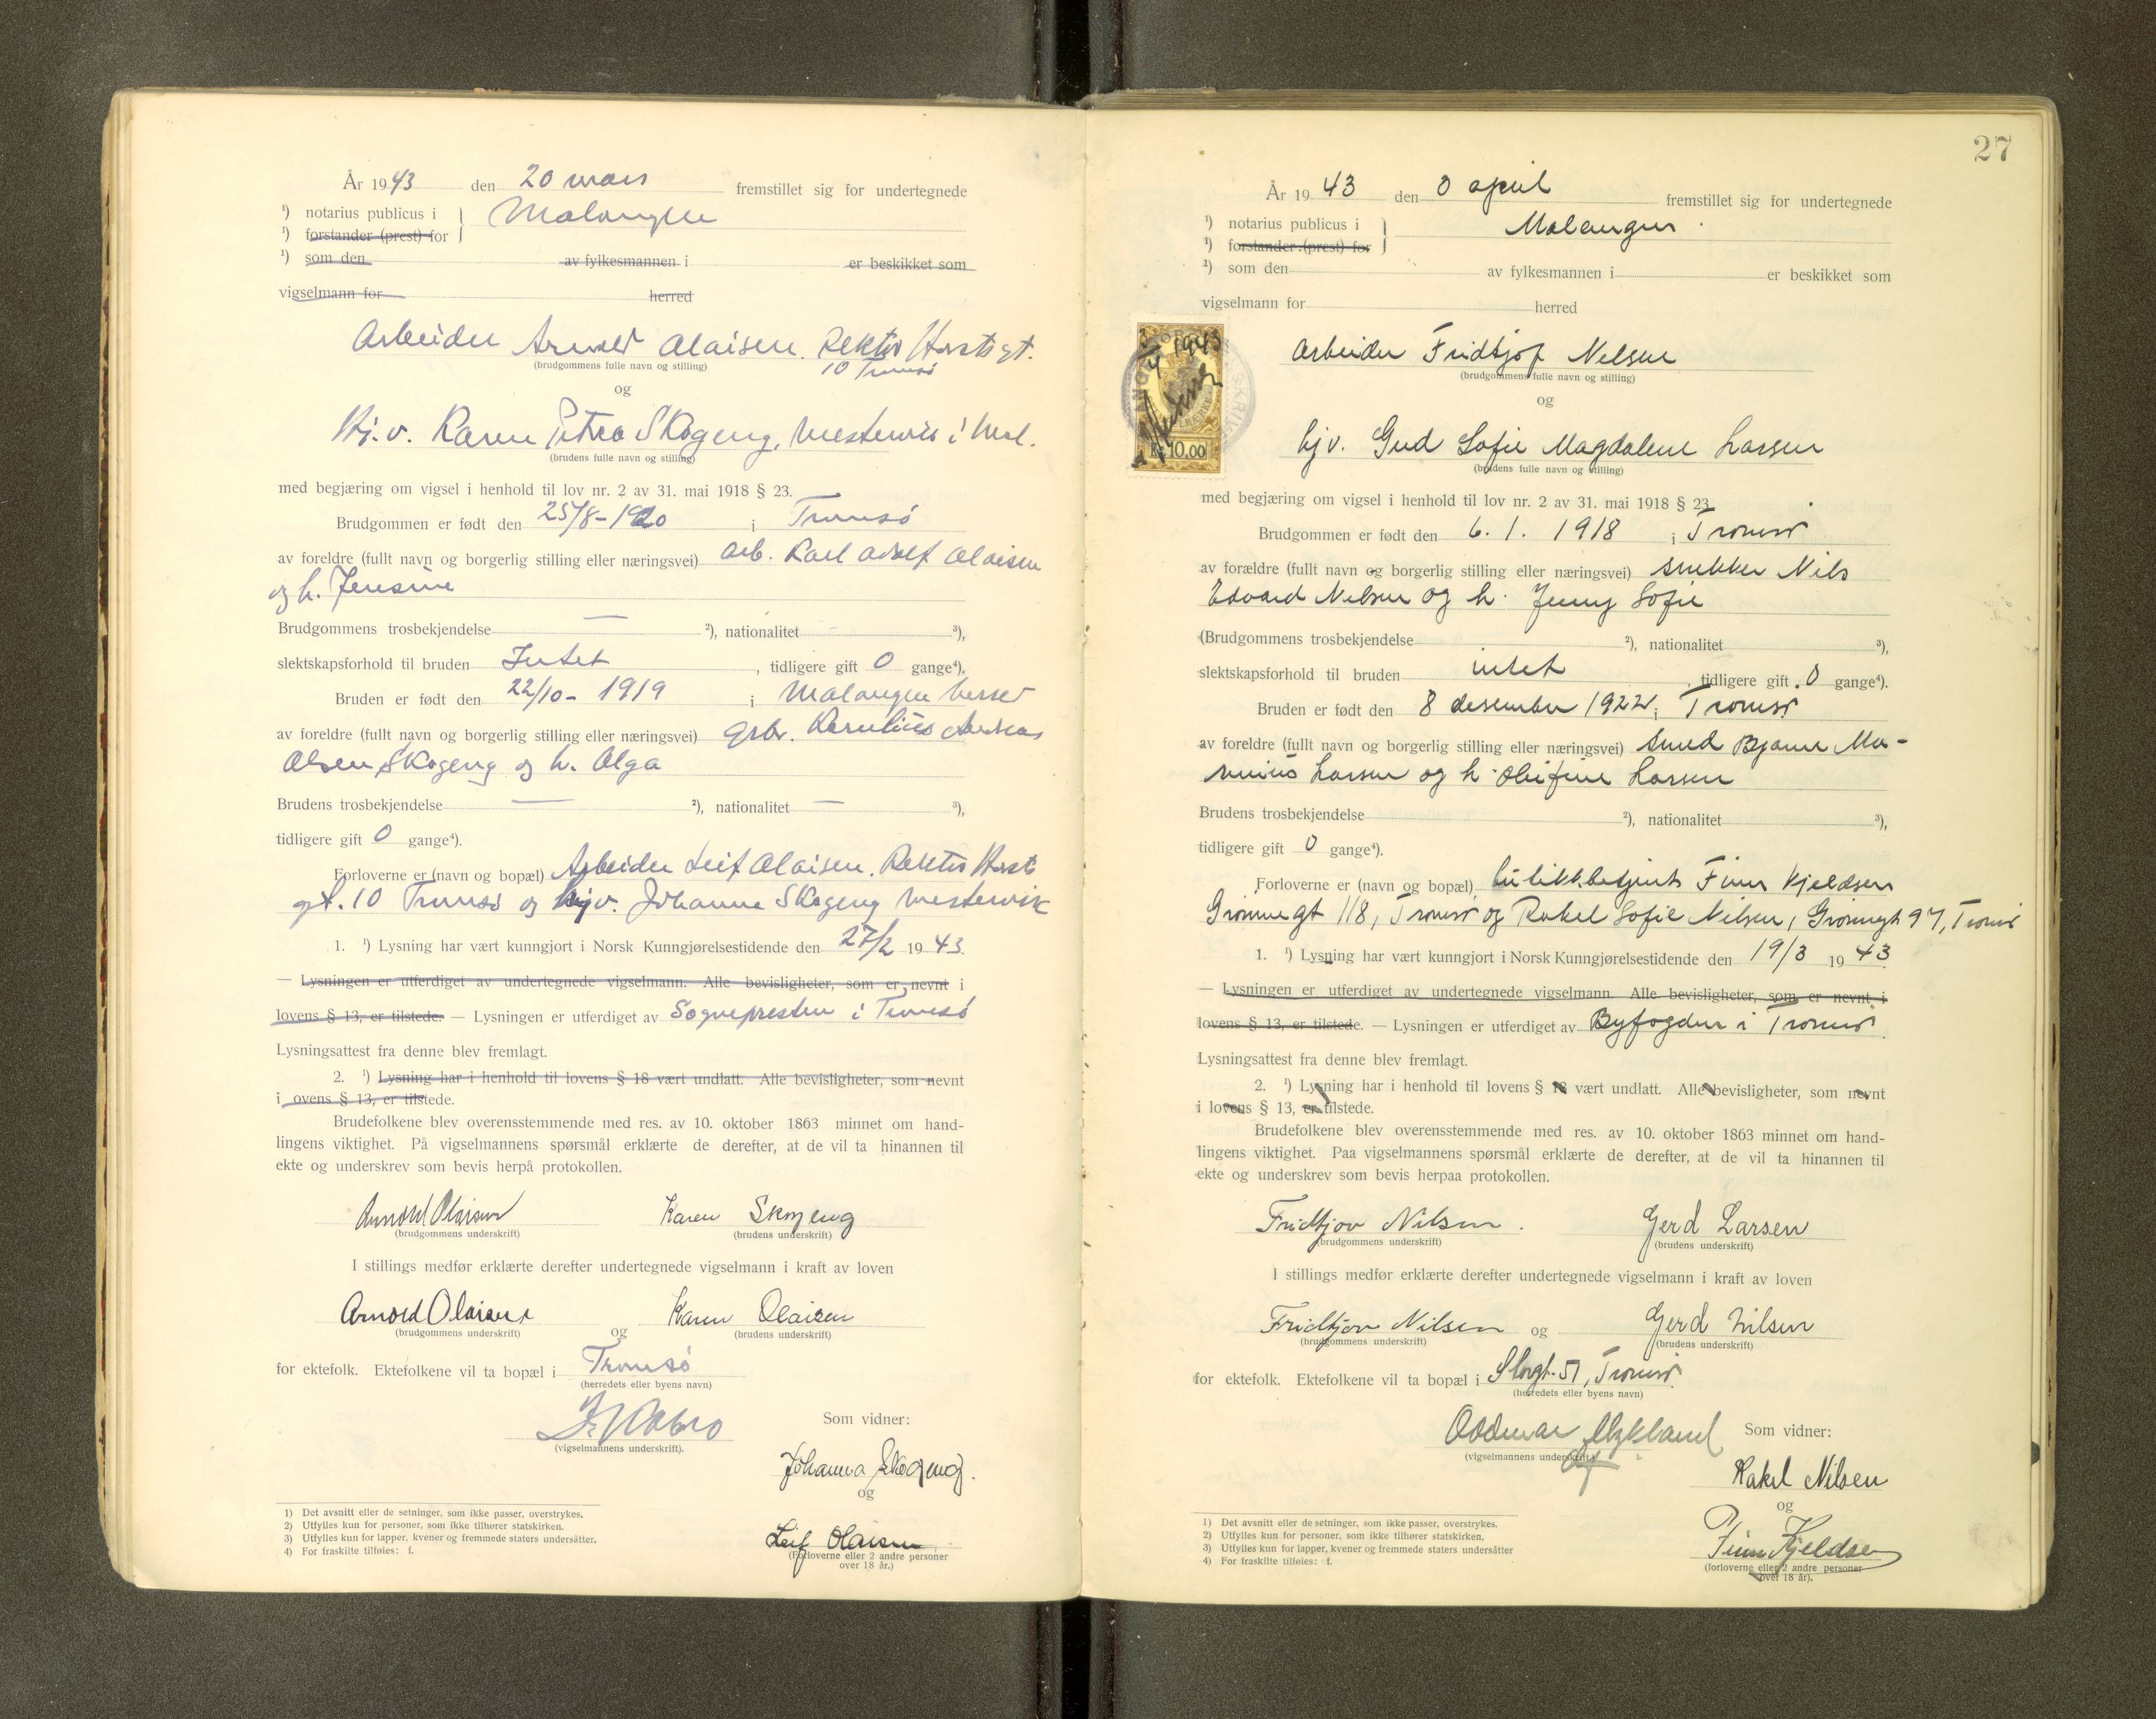 År 1943 den 20 mars fremstillet sig for undertegnede
¹) notarius publicus i Malangen
¹) forstander (prest) for
¹) som den av fylkesmannen i er beskikket som
vigselmann for herred
Arbeider Arnold Olaisen. Rektor Horstsgt.
10 Tromsö
(brudgommens fulle navn og stilling)
og
Hj.v. Karen Petra Skogeng, Mestervik i Mal.
(brudens fulle navn og stilling)
med begjæring om vigsel i henhold til lov nr. 2 av 31. mai 1918 § 23.
Brudgommen er født den 25/8-1920 i Tromsö
av foreldre (fullt navn og borgerlig stilling eller næringsvei) arb. Karl Adolf Olaisen
og h. Jensine
Brudgommens trosbekjendelse — ²), nationalitet — ³),
slektskapsforhold til bruden Intet, tidligere gift 0 gange⁴).
Bruden er født den 22/10- 1919 i Malangen herred
av foreldre (fullt navn og borgerlig stilling eller næringsvei) grbr. Karelius Andreas
Olsen Skogeng og h. Olga
Brudens trosbekjendelse — ²), nationalitet — ³),
tidligere gift 0 gange⁴).
Forloverne er (navn og bopæl) Arbeider Leif Olaisen. Rektor Horsts
gt. 10 Tromsö og hjv. Johanna Skogeng Mestervik
1. ¹) Lysning har vært kunngjort i Norsk Kunngjørelsestidende den 27/2 1943.
— Lysningen er utferdiget av undertegnede vigselmann. Alle bevisligheter, som er nevnt i
lovens § 13, er tilstede. — Lysningen er utferdiget av Sognepresten i Tromsö
Lysningsattest fra denne blev fremlagt.
2. ¹) Lysning har i henhold til lovens § 18 vært undlatt. Alle bevisligheter, som nevnt
i ovens § 13, er tilstede.
Brudefolkene blev overensstemmende med res. av 10. oktober 1863 minnet om hand-
lingens viktighet. På vigselmannens spørsmål erklærte de derefter, at de vil ta hinannen til
ekte og underskrev som bevis herpå protokollen.
Arnold Olaisen Karen Skogeng
(brudgommens underskrift) (brudens underskrift)
I stillings medfør erklærte derefter undertegnede vigselmann i kraft av loven
Arnold Olaisen Karen Olaisen
(brudgommens underskrift) og (brudens underskrift)
for ektefolk. Ektefolkene vil ta bopæl i Tromsö
(herredets eller byens navn)
(vigselmannens underskrift).
Som vidner:
Johanna Skogeng.
og
Leif Olaisen
(Forloverne eller 2 andre personer
over 18 år.)
1) Det avsnitt eller de setninger, som ikke passer, overstrykes.
2) Utfylles kun for personer, som ikke tilhører statskirken.
3) Utfylles kun for lapper, kvener og fremmede staters undersåtter.
4) For fraskilte tilføies: f.
27
År 1943 den 3 april fremstillet sig for undertegnede
¹) notarius publicus i Malangen
¹) forstander (prest) for
¹) som den av fylkesmannen i er beskikket som
vigselmann for herred
1943
Kr. 10.00
Arbeider Fridtjof Nelsen
(brudgommens fulle navn og stilling)
og
hjv. Gerd Sofie Magdalene Larsen
(brudens fulle navn og stilling)
med begjæring om vigsel i henhold til lov nr. 2 av 31. mai 1918 § 23.
Brudgommen er født den 6. 1. 1918 i Tromsø
av forældre (fullt navn og borgerlig stilling eller næringsvei) snekker Nils
Edvard Nelsen og h. Jenny Sofie
(Brudgommens trosbekjendelse ²), nationalitet ³),
slektskapsforhold til bruden intet, tidligere gift 0 gange⁴).
Bruden er født den 8 desember 1922 i Tromsø
av foreldre (fullt navn og borgerlig stilling eller næringsvei) smed Bjarne Ma-
renius Larsen og h. Olufine Larsen
Brudens trosbekjendelse ²), nationalitet ³),
tidligere gift 0 gange⁴).
Forloverne er (navn og bopæl) Finn Kjeldsen
Grønnegt 118, Tromsø og Rakel Sofie Nilsen, Grønnegt 97, Tromsø
1. ¹) Lysning har vært kunngjort i Norsk Kunngjørelsestidende den 19/3 1943.
— Lysningen er utferdiget av undertegnede vigselmann. Alle bevisligheter, som er nevnt i
lovens § 13, er tilstede. — Lysningen er utferdiget av Byfogden i Tromsø.
Lysningsattest fra denne blev fremlagt.
2. ¹) Lysning har i henhold til lovens § 18 vært undlatt. Alle bevisligheter, som nevnt
i lovens § 13, er tilstede.
Brudefolkene blev overensstemmende med res. av 10. oktober 1863 minnet om hand-
lingens viktighet. Paa vigselmannens spørsmål erklærte de derefter, at de vil ta hinannen til
ekte og underskrev som bevis herpaa protokollen.
Fridtjov Nilsen. Gerd Larsen
(brudgommens underskrift) (brudens underskrift)
I stillings medfør erklærte derefter undertegnede vigselmann i kraft av loven
Fridtjov Nilsen og Gerd Nilsen
(brudgommens underskrift) (brudens underskrift)
for ektefolk. Ektefolkene vil ta bopæl i Storgt. 51, Tromsø
(herredets eller byens navn)
Oddmar Mykland
(vigselmannens underskrift)
Som vidner:
Rakel Nilsen
og
Finn Kjeldsen
(forloverne eller 2 andre personer
over 18 år).
1) Det avsnitt eller de setninger, som ikke passer, overstrykes.
2) Utfylles kun for personer, som ikke tilhører statskirken.
3) Utfylles kun for lapper, kvener og fremmede staters undersåtter
4) For fraskilte tilføies: f.